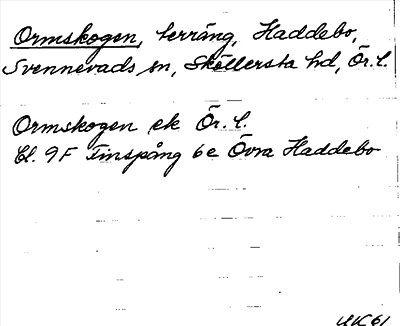 Ormskogen, terräng, Haddebo,
Svennevads sn, Sköllersta hd, Ör. l.
Ormskogen ek Ör. l.
Bl. 9F Finspång 6e Övra Haddebo
UK 61